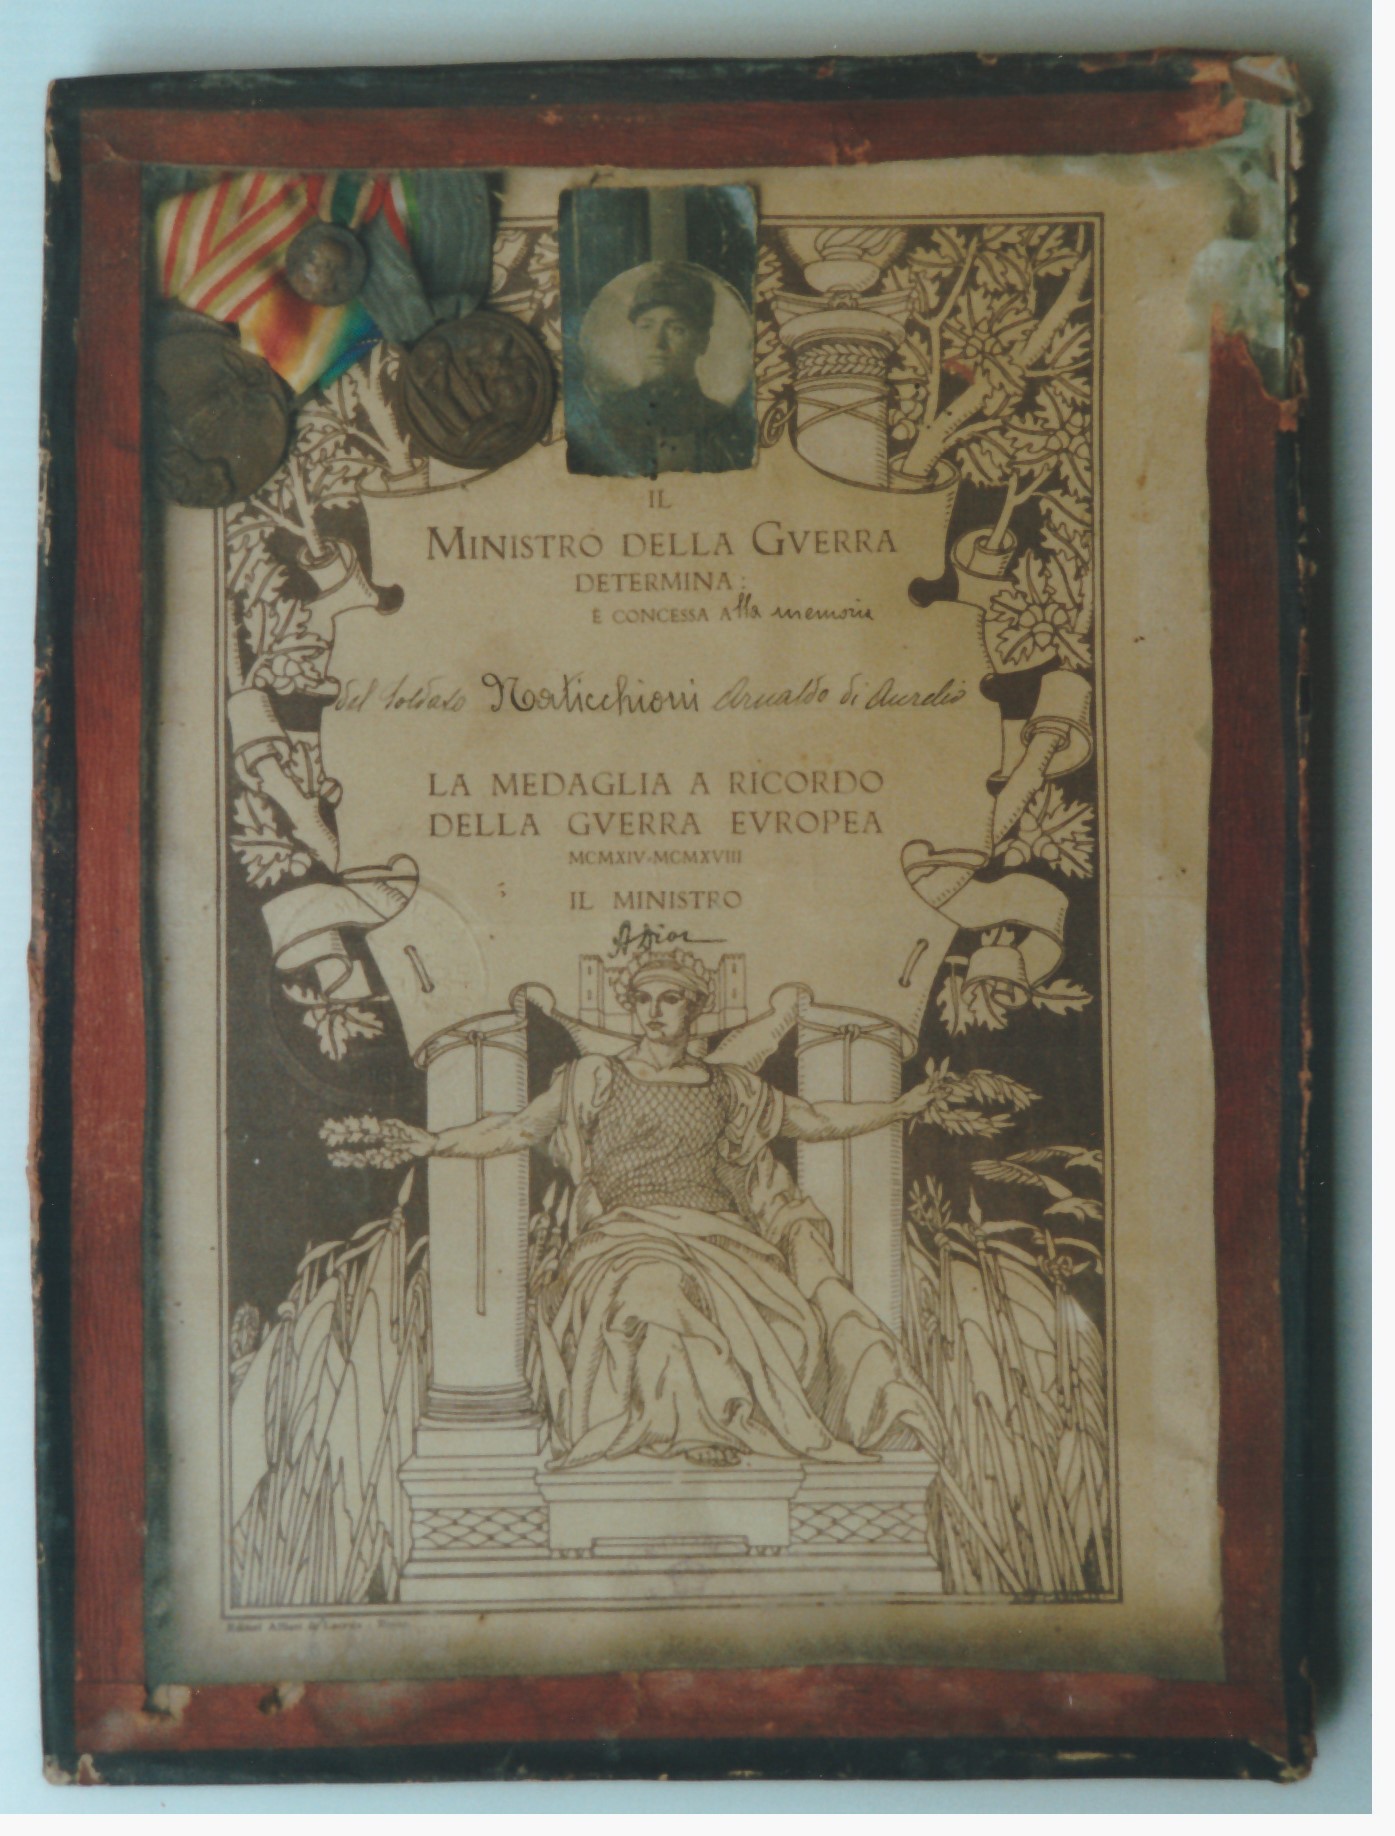 IL
MINISTRO DELLA GVERRA
DETERMINA:
È CONCESSA Alla memoria
del soldato Naticchioni Arnaldo di Aurelio
LA MEDAGLIA A RICORDO
DELLA GVERRA EVROPEA
MCMXIV-MCMXVIII
IL MINISTRO
Editori Alfieri & Lacroix - Roma